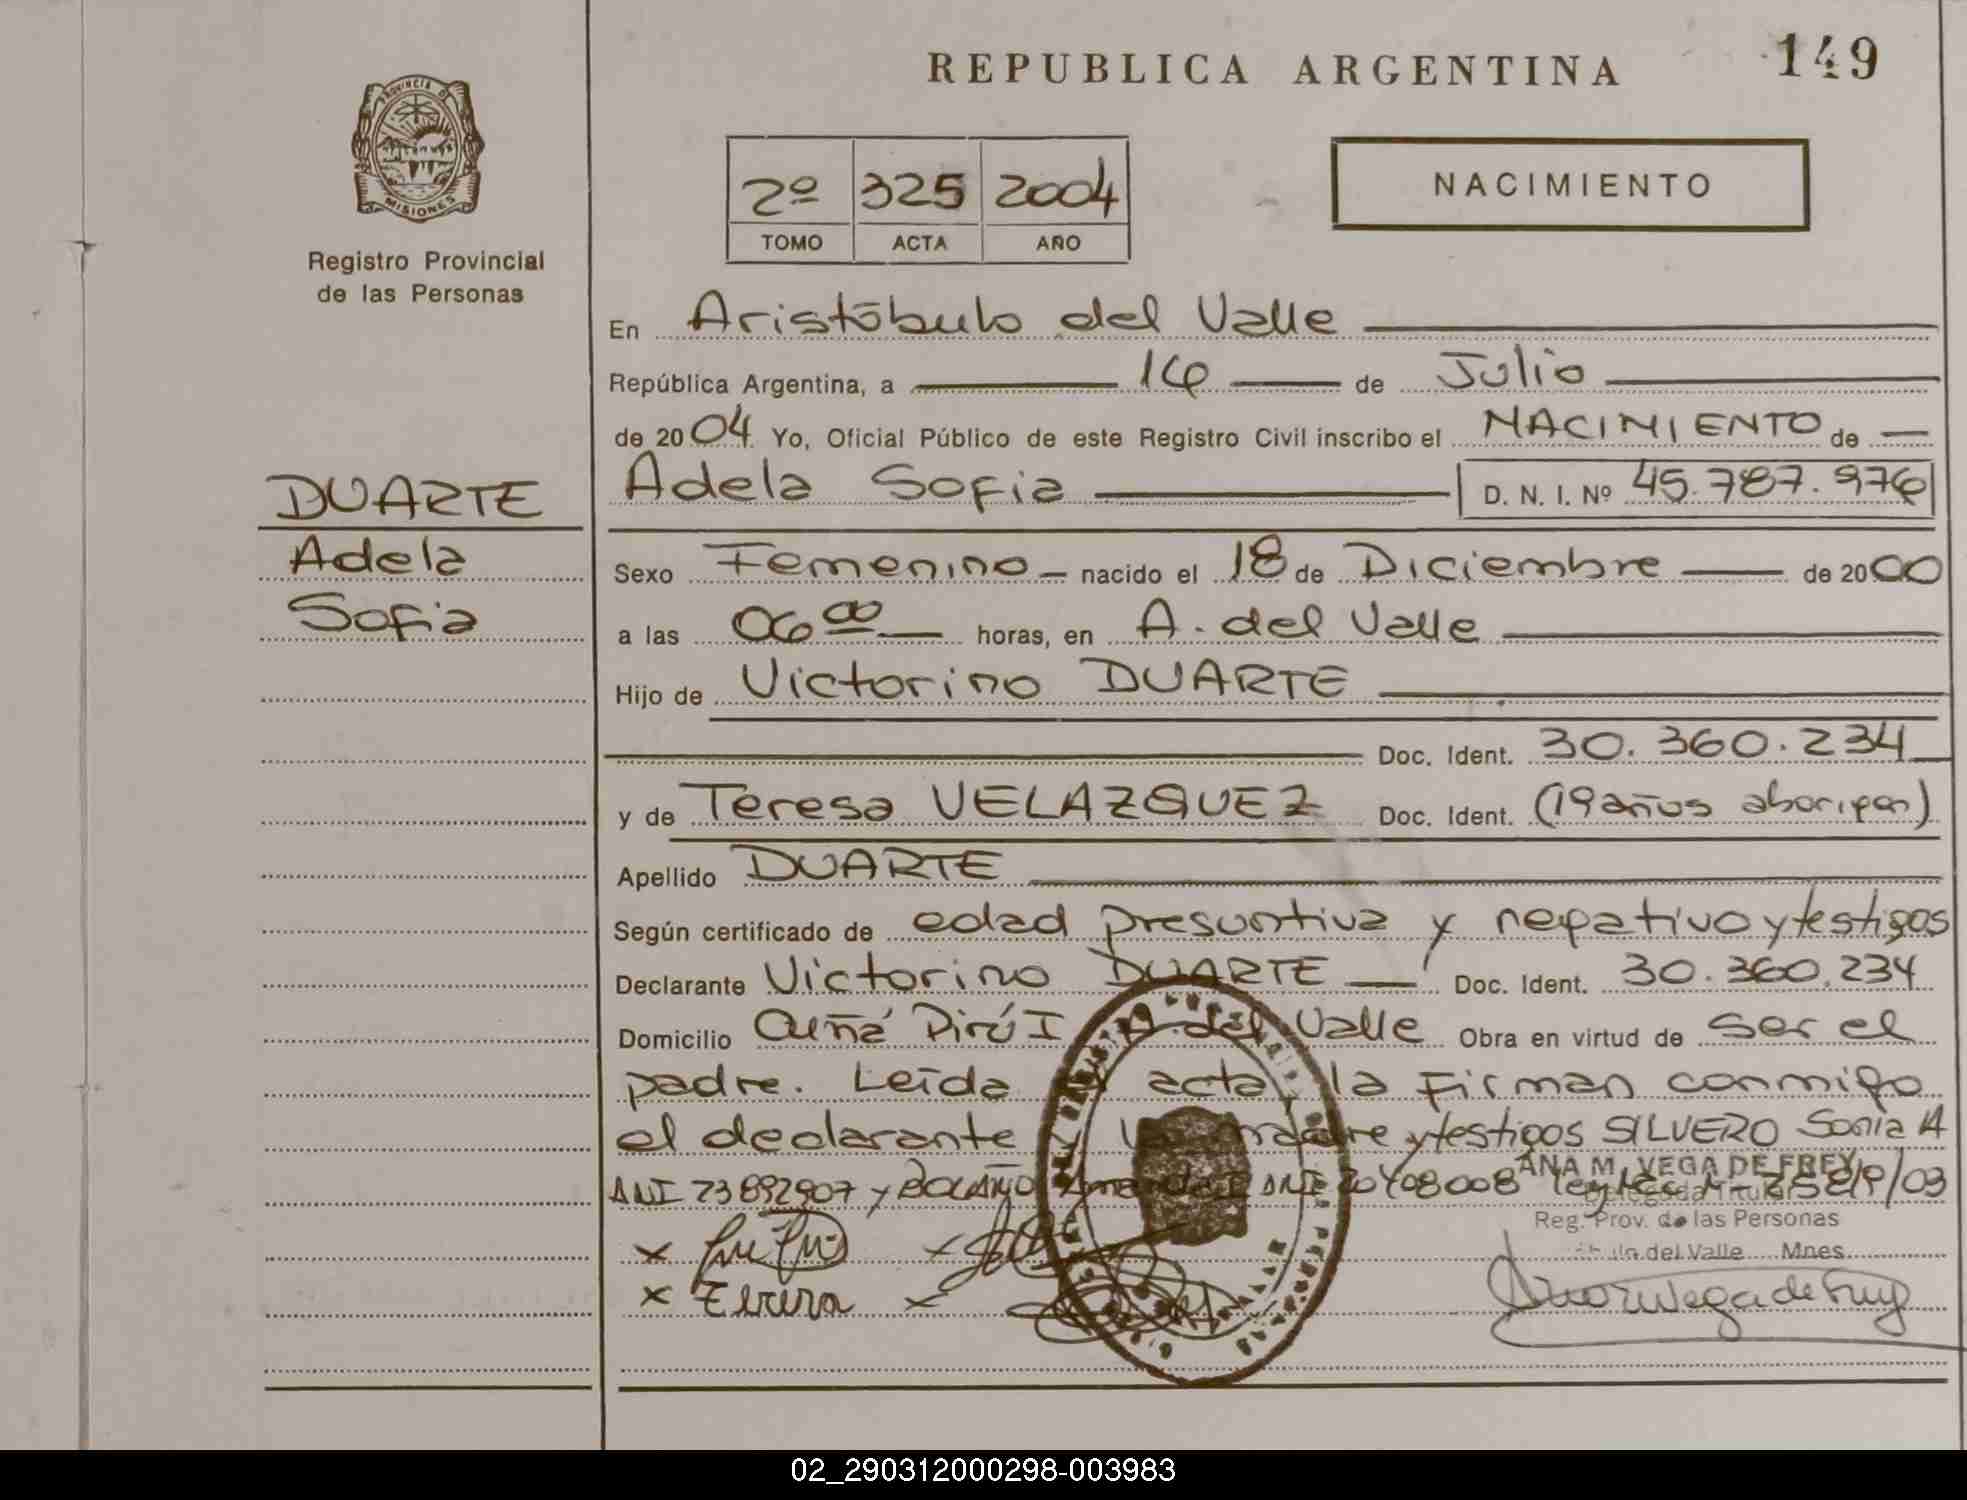 REPUBLICA ARGENTINA
149
PROVINCIA DE
MISIONES
Registro Provincial
de las Personas
2º 325 2004
TOMO ACTA AÑO
NACIMIENTO
En Aristóbulo del Valle
República Argentina, a 16 de Julio
de 2004 Yo, Oficial Público de este Registro Civil inscribo el NACIMIENTO de
Adela Sofia D. N. I. Nº 45.787.976
DUARTE
Adela
Sofia
Sexo Femenino nacido el 18 de Diciembre de 2000
a las 06 00 horas, en A. del Valle
Hijo de Victorino DUARTE
Doc. Ident. 30.360.234
y de Teresa VELAZQUEZ Doc. Ident. (19 años aborigen)
Apellido DUARTE
Según certificado de edad presuntiva y negativo y testigos
Declarante Victorino DUARTE Doc. Ident. 30.360.234
Domicilio Cuñá Pirú I A. del Valle Obra en virtud de ser el
padre. Leída acta, la firman conmigo
el declarante y la madre y testigos SILVERO Sonia A
DNI 23892907 y BOLAÑO DNI 20408008
ANA M. VEGA DE FREY
Delegada Titular
Reg. Prov. de las Personas
del Valle Mnes.
02_290312000298-003983